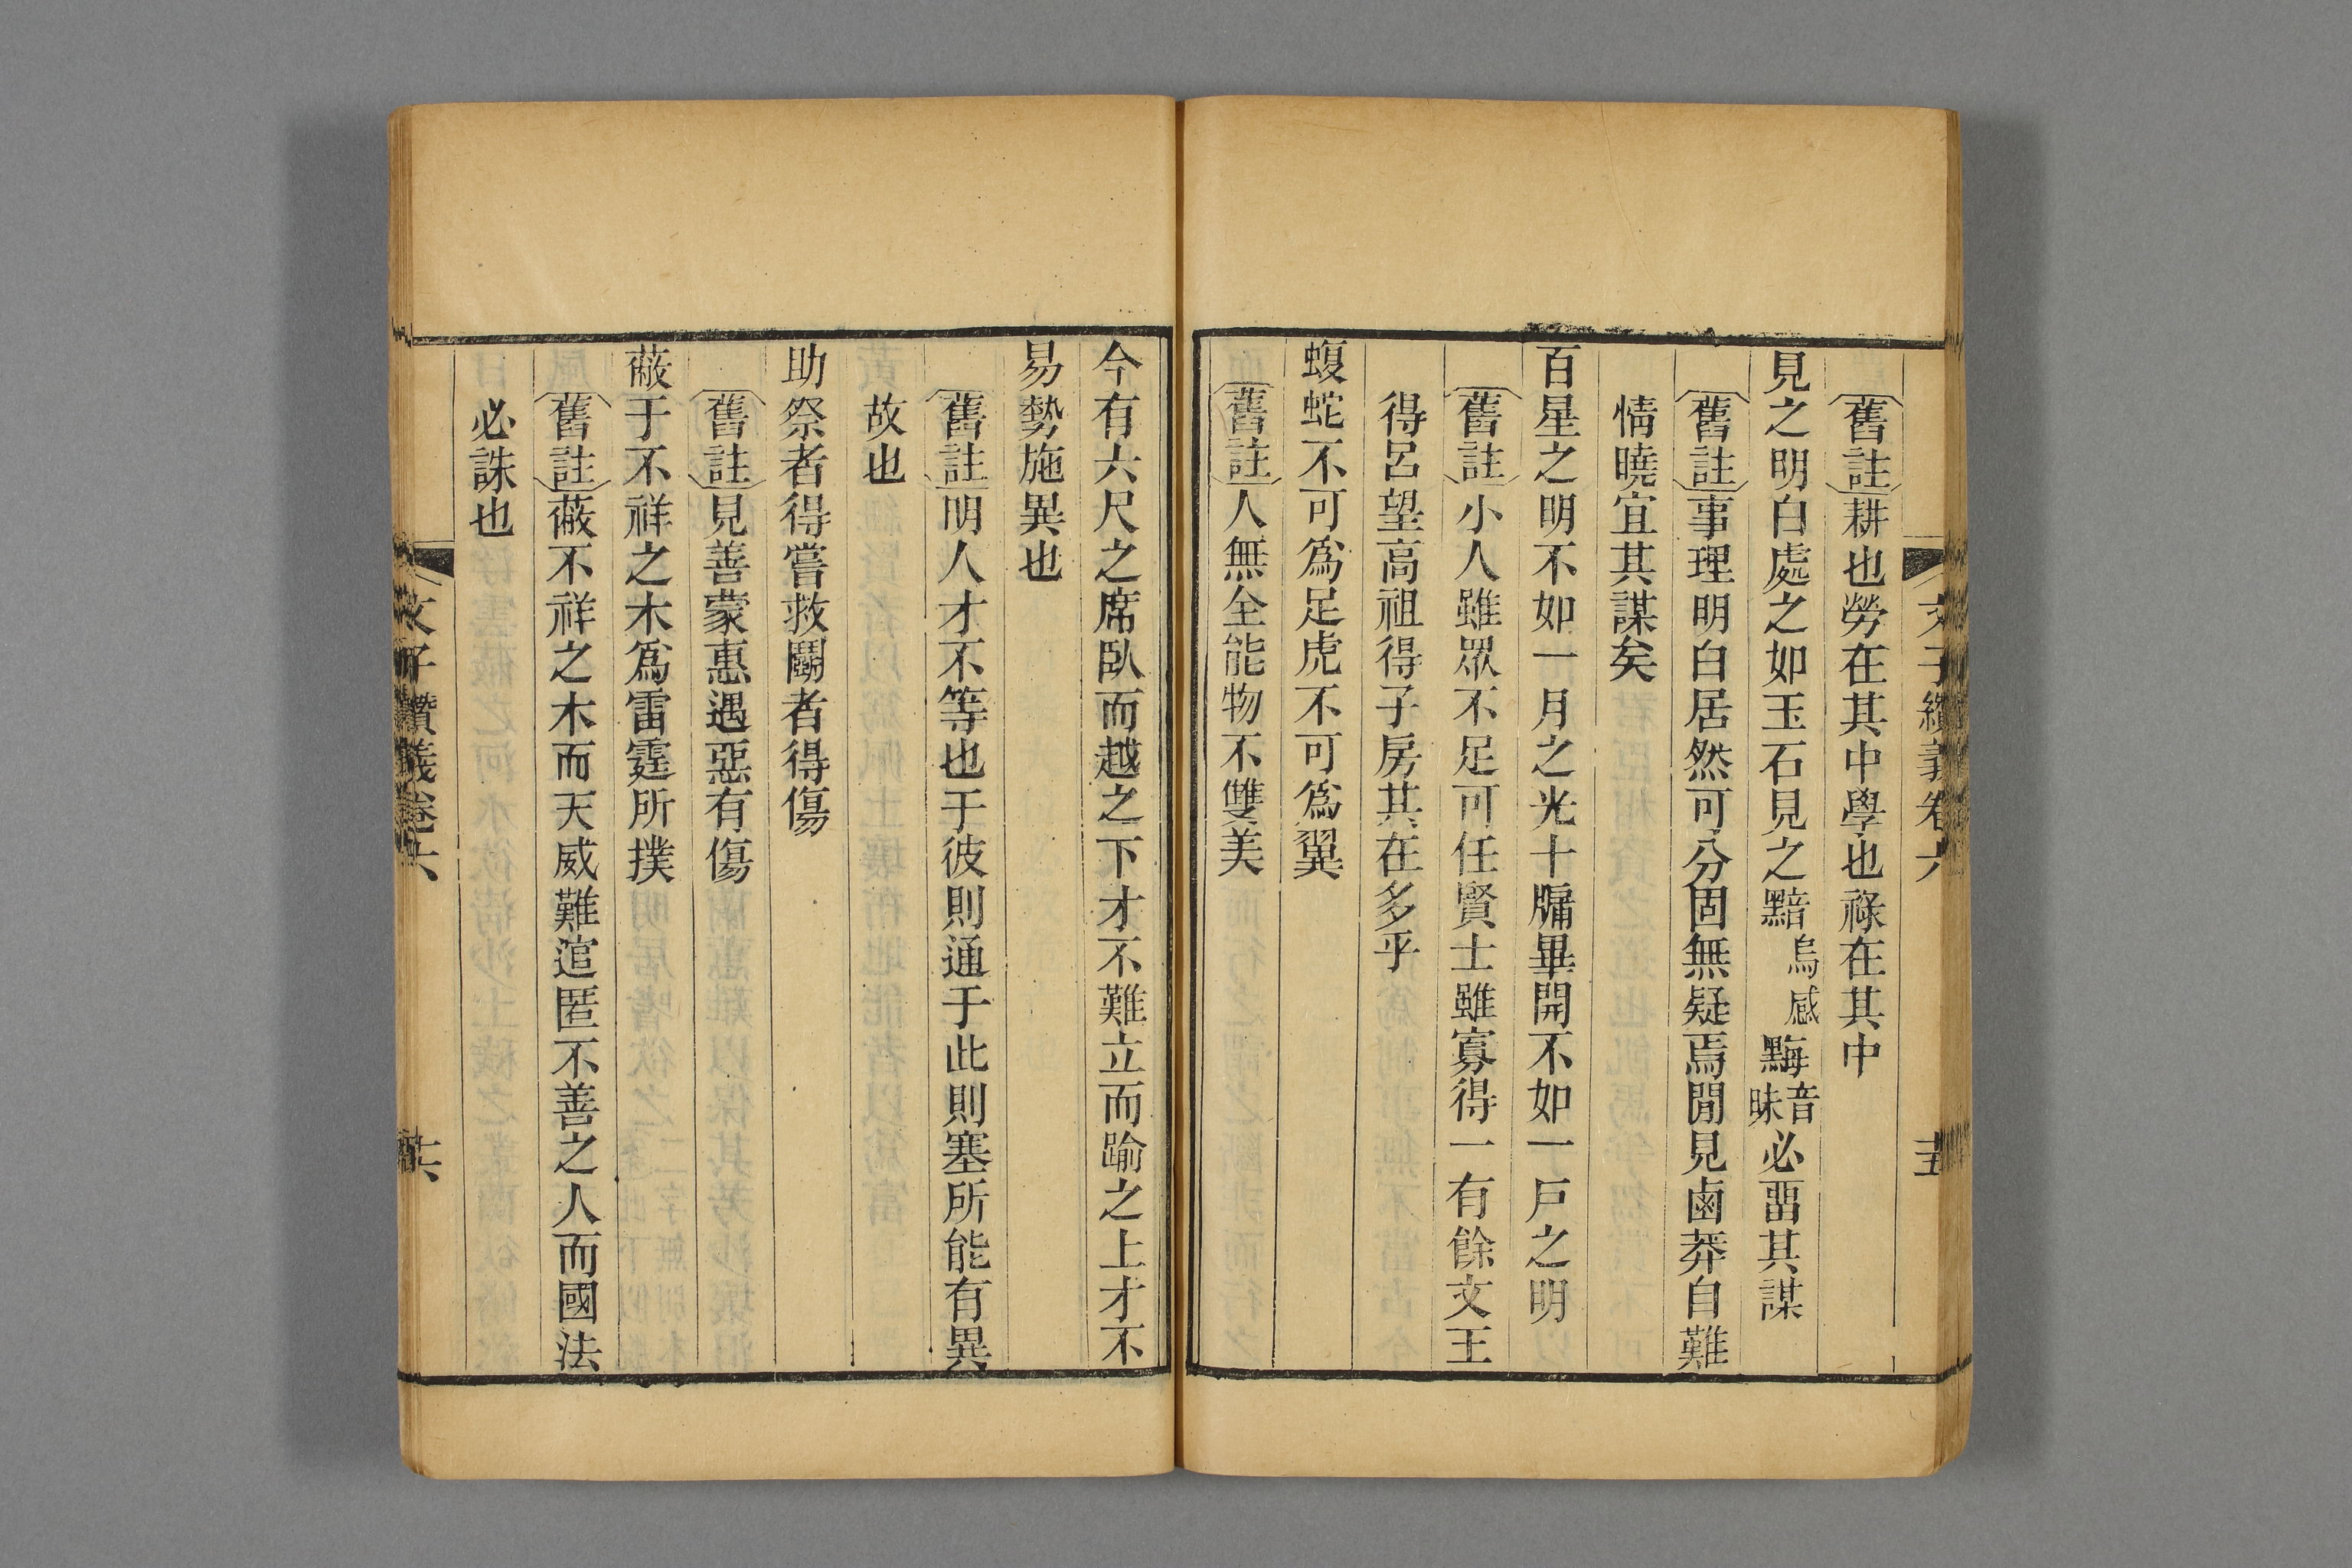 文子纘義卷六 十五
舊註耕也勞在其中學也祿在其中
見之明白處之如玉石見之黯烏感黣音昧必畱其謀
舊註事理明白居然可分固無疑焉聞見鹵莽自難
情曉宜其謀矣
百星之明不如一月之光十牖畢開不如一戶之明
舊註小人雖眾不足可任賢士雖寡得一有餘文王
得呂望高祖得子房其在多乎
蝮蛇不可為足虎不可為翼
舊註人無全能物不雙美
今有六尺之席臥而越之下才不難立而踰之上才不
易勢施異也
舊註明人才不等也于彼則通于此則塞所能有異
故也
助祭者得嘗救鬭者得傷
舊註見善蒙惠遇惡有傷
蔽于不祥之木為雷霆所撲
舊註蔽不祥之木而天威難逭匿不善之人而國法
必誅也
文子纘義卷六 十六